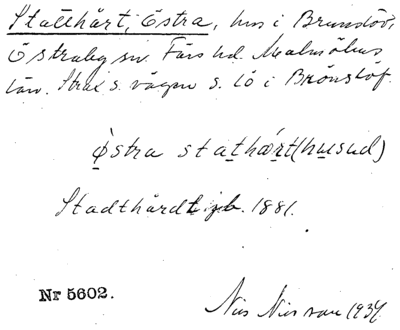 Stadthårt, Östra, hus i Brunslöv,
Östraby sn. Färs hd. Malmöhus
län. Strax s. vägen s. io i Brönslöf.
östra stathært (husud)
Stadthårdt jb. 1881.
Nr 5602.
Nils Nilsson 1934.